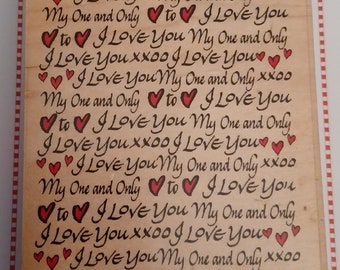 I Love You My One and Only
My One and Only ♥ to ♥ I Love You
♥ to ♥ I Love You My One and Only
I Love You xxoo I Love You
My One and Only I Love You My One and Only xxoo
My One and Only ♥ to ♥ I Love You
♥ to ♥ I Love You My One and Only
I Love You xxoo I Love You
I Love You My One and Only xxoo
My One and Only ♥ to ♥ I Love You
♥ to ♥ I Love You My One and Only
I Love You xxoo I Love You
I Love You My One and Only xxoo